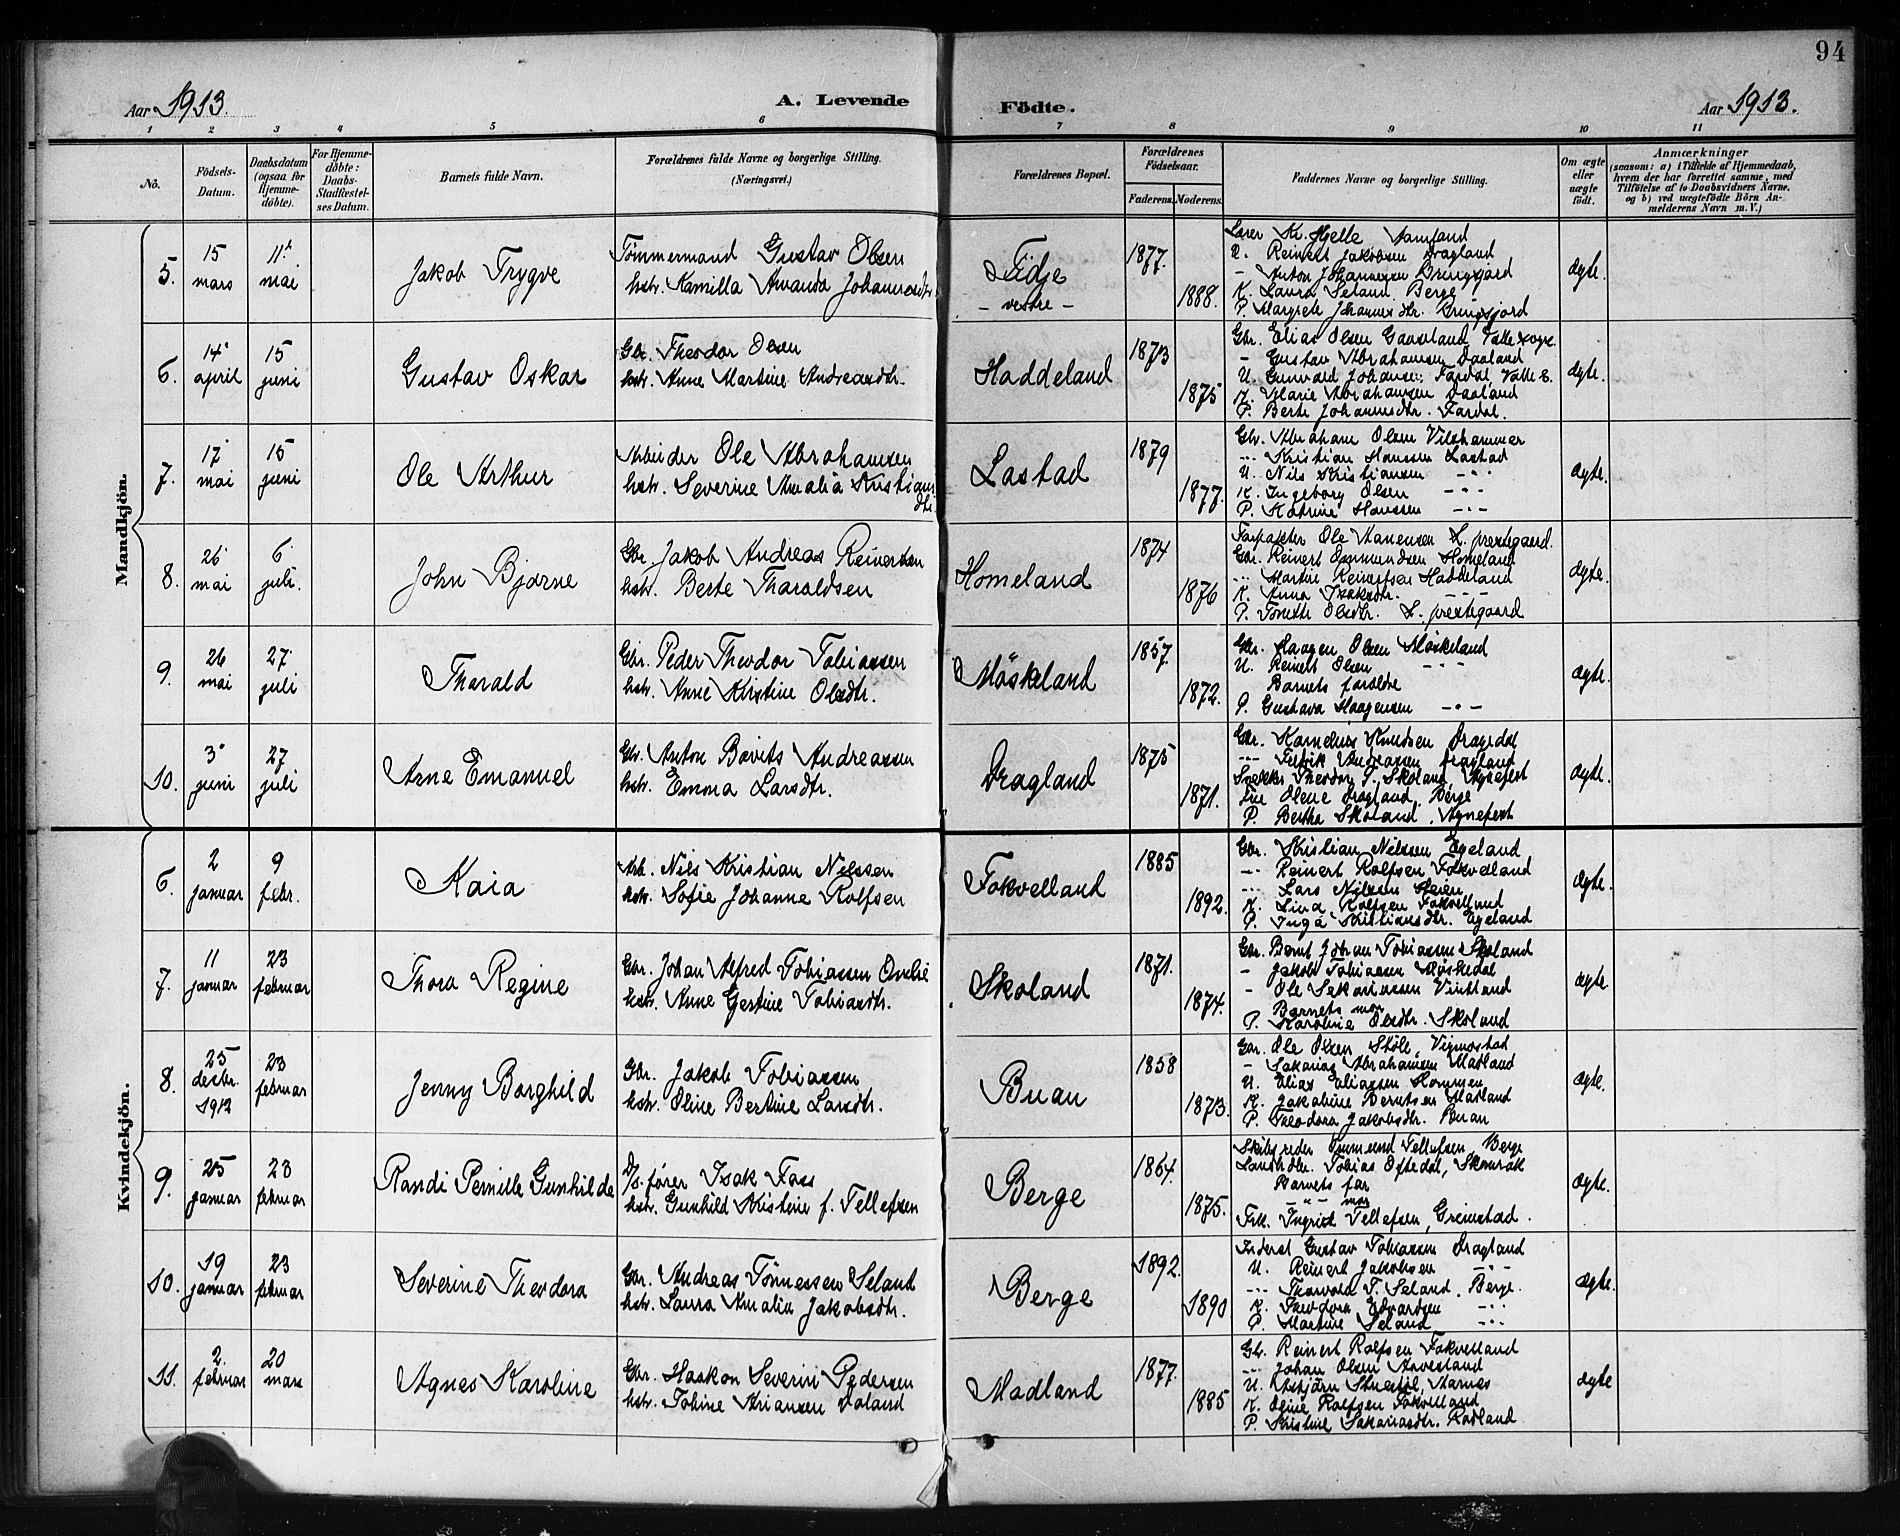 94
Aar 1913.
A. Levende Födte.
Aar 1913.
1 2 3 4 5 6 7 8 9 10 11
No.
Födsels-Datum.
Daabsdatum (ogsaa for Hjemme-döbte).
For Hjemme-döbte: Daabs-Stadfestel-ses Datum.
Barnets fulde Navn.
Forældrenes fulde Navne og borgerlige Stilling. (Næringsvei.)
Forældrenes Bopæl.
Forældrenes Födselsaar.
Faderens. Moderens.
Faddernes Navne og borgerlige Stilling.
Om ægte eller uægte födt.
Anmærkninger
(saasom: a) i Tilfælde af Hjemmedaab, hvem der har forrettet samme, med Tilföielse af to Daabsvidners Navne, og b) ved uægtefödte Börn An-melderens Navn m. V.)
Mandkjön.
5. 15 mars 11 mai Jakob Trygve
Tömmermand Gustav Olsen
hstr. Kamilla Amanda
Tidje
- vestre -
1877. 1888.
Lærer Kr. Hjelle
U. Reinert Jakobsen Dragland
- Anton Johannesen Bringsjord
K. Laura Seland Berge
P. Margrete Bringsjord
ægte.
6. 14 april 15 juni Gustav Oskar
Gbr. Theodor Olsen
hstr. Anne Martine Andreasdtr.
Haddeland
1873 1875
Gbr. Elias Olsen Gaaseland
- Gustav Abrahamsen Daaland
U. Gunvald Johansen Fardal, Valle S.
K. Marie Abrahamsen Daaland
P. Berte Johannesdtr. Fardal.
ægte.
7. 17 mai 15 juni Ole Arthur
Arbeider Ole Abrahamsen
hstr. Severine Amalia Kristians
dtr.
Lastad
1879 1877.
Gbr. Abraham Olsen
-"- Kristian Hanssen Lastad
U. Nils Kristiansen -"-
K. Ingeborg Olsen -"-
P. Katrine Hanssen -"-
ægte.
8. 26 mai 6 juli. John Bjarne
Gbr. Jakob Andreas Reinertsen
hstr. Berte Tharaldsen
Homeland
1874 1876
Forpakter Ole Hanensen L. prestegaard.
Gbr. Reinert Homeland
-"- Martin Reinertsen Haddeland
K. Anna Isaksdtr. -"-
P. Tonette Olsdtr. L. prestegaard
ægte.
9. 26 mai 27 juli Tharald
Gbr. Peder Theodor Tobiassen
hstr. Anne Kristine Olsdtr.
Möskeland
1857. 1872.
Gbr. Haagen Olsen Möskeland
U. Reinert Olsen -"-
Barnets foreldre
P. Gustava Haagensen -"-
ægte.
10. 3 juni 27 juli Arne Emanuel
Gbr. Anton Andreassen
hstr. Emma Larsdtr.
Dragland
1875 1871.
Gbr. Kornelius Knudsen
-"- Fredrik Andreassen Dragland
Theodor T. Skoland, Agnefest
Olene Dragland, Berge
P. Bertha Skoland, Agnefest
ægte.
Kvindekjön.
6. 2 januar 9 febr. Kaia
Arb. Nils Kristian Nilssen
hstr. Sofie Johanne Rolfsen
Fokvelland
1885 1892.
Gbr. Kristian Nilssen Egeland
-"- Reinert Rolfsen Fokvelland
-"- Lars Nilssen Steien
K. Lina Rolfsen Fokvelland
P. Inga Kristiansdtr. Egeland
ægte.
7. 11 januar 23 februar Thora Regine
Gbr. Johan Alfred Tobiassen
hstr. Anne Gertine Tobiasdtr.
Skoland
1871. 1874.
Gbr. Bernt Johan Tobiassen Skoland
- Jakob Tobiassen Möskedal
- Ole Sakariassen Vintland
Barnets mor
P. Karoline Olsdtr. Skoland
ægte
8. 25 desbr. 1912 23 februar Jenny Borghild
Gbr. Jakob Tobiassen
hstr. Oline Bertine Larsdtr.
Buan
1858 1873.
Gbr. Ole Olsen Støle, Vigmostad
- Sakarias Abrahamsen Madland
U. Elias Eliassen Hommen
K. Jakobine Berntsen Madland
P. Theodora Jakobsdtr. Buan
ægte.
9. 25 januar 23 februar Randi Pernille Gunhilde
D/S.fører Isak Fass
hstr. Gunhild Kristine f. Tellefsen
Berge
1864. 1875.
Skibsreder Tellefsen Berge
Landhdlr. Tobias Oftedal,
Barnets far
-"- mor
Frk. Ingrid Tellefsen, Grimstad.
ægte.
10. 19 januar 23 februar Severine Theodora
Gbr. Andreas Tönnessen Seland
hstr. Laura Amalia Jakobsdtr.
Berge
1892. 1890
Inderst Gustav Tobiassen Dragland
U. Reinert Jakobsen -"-
-"- Tharvald T. Seland, Berge.
K. Theodora Edvardsen -"-
P. Martine Seland -"-
ægte.
11. 2. februar 20 mars Agnes Karoline
Gbr. Haakon Severin Pedersen
hstr. Tobine Ariansen Daland
Madland
1877. 1885
Gbr. Reinert Rolfsen Fokvelland
-"- Johan Olsen
U. Asbjørn
K. Oline Rolfsen Fokvelland
P. Kristine Sakariasdtr. Rodland
ægte